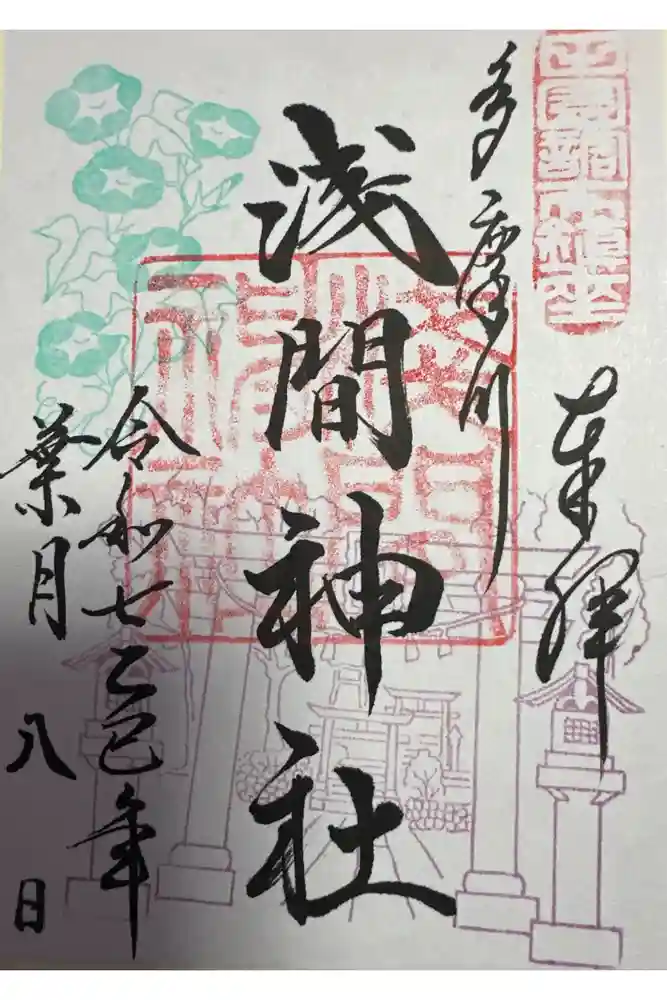 奉拝
多摩川
浅間神社
令和七乙巳年
葉月 八 日